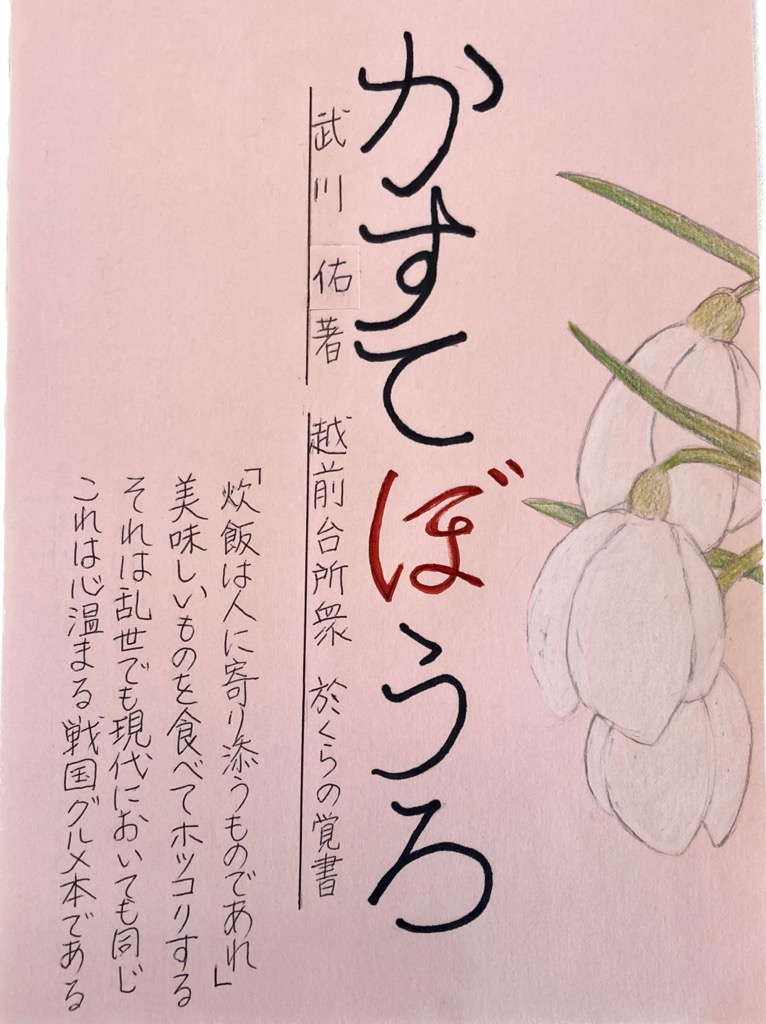 かすてぼうろ
武川 佑 著
越前台所衆 於くらの覚書
「炊飯は人に寄り添うものであれ」
美味しいものを食べてホッコリする
それは乱世でも現代においても同じ
これは心温まる戦国グルメ本である